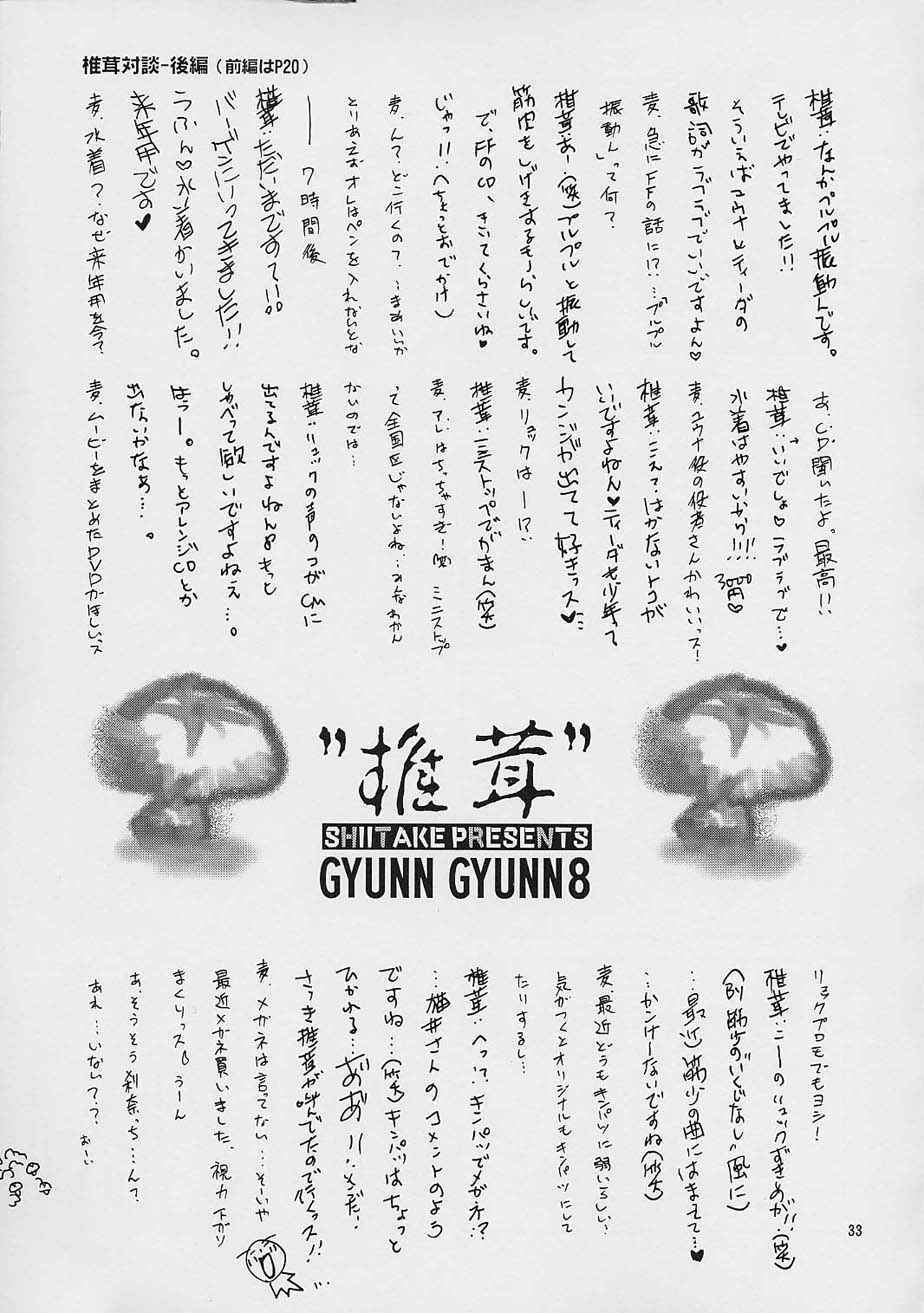 椎茸対談-後編（前編はP20）
椎茸：なんかプルプル振動んです。
テレビでやってました!!
そういえばユウナとティーダの
歌詞がラブラブでいいですよん♡
麦、急にFFの話に!?…プルプル
振動ん」って何？
椎茸：あー（笑）プルプルと振動して
筋肉をしげきするモノらしいです。
で、FFのCD、きいてくらさいね♥
じゃっ!!（ちょっとおでかけ）
麦、んで？どこ行くので？…まあいいか
とりあえずオレはペンを入れないとな
―― 7時間後
椎茸：ただいまですー!!
バーゲンにいってきました!!
うふん♡水着かいました。
来年用です♥
麦、水着？なぜ来年用を今？
あ、CD聞いたよ。最高!!
椎茸：いいでしょ♡ラブラブで…♥
水着はやすいから!!!! 3000円♡
麦、ユウナ役の役者さんかわいいっス！
椎茸：こえ？はかないトコが
いいですよねん♡ティーダも少年って
カンジが出てて好きっス♥…
麦、リュックはー!?
椎茸：ミニストップでがまん（笑）
麦、アレはちっちゃすぎ！(笑) ミニストップ
って全国区じゃないよね…みなわかん
ないのでは…
椎茸：リュックの声のコがCMに
出てるんですよねん♪もっと
しゃべって欲しいですよねえ…。
はうー。もっとアレンジCDとか
出ないかなぁ…。
麦、ムービーをまとめたDVDがほしいっス
"椎茸"
SHIITAKE PRESENTS
GYUNN GYUNN 8
リュックプロモでもヨシ！
椎茸：こーのリュックずきめが!!（笑）
（筋少の"いくじなし"風に）
…最近筋少の曲にはまえて…♥
…かんけーないですね（笑）
麦、最近どうもキンパツに弱いらしい…
気がつくとオリジナルもキンパツにして
たりするし…
椎茸：へっ!?キンパツでメガネ!?
…猫井さんのコメントのよう
ですね…（笑）キンパツはちょっと
ひかれる…あ゛あ゛!!…メだ！
さっき椎茸が叫んでたので行くっス!!…
麦、メガネは言ってない…そーいや
最近メガネ買いました、視力下がり
まくりっス うーん
あ、そうそう刹奈っち…ん？
あれ…いない？？ おーい
33